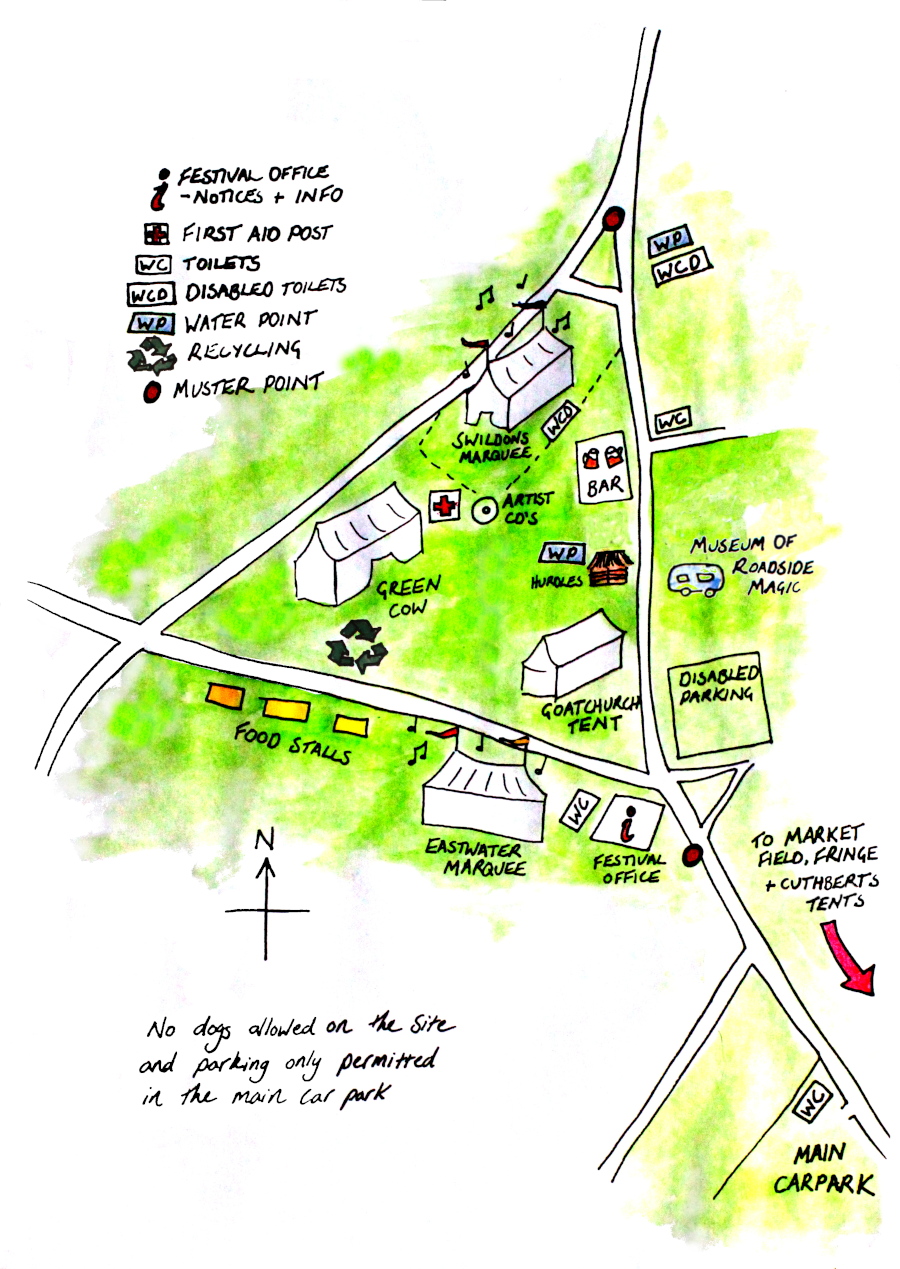 FESTIVAL OFFICE
- NOTICES + INFO
FIRST AID POST
WC TOILETS
WCD DISABLED TOILETS
WP WATER POINT
RECYCLING
MUSTER POINT
WP
WCD
WC
SWILDONS
MARQUEE
WCD
BAR
ARTIST
CD'S
WP
HURDLES
MUSEUM OF
ROADSIDE
MAGIC
GREEN
COW
GOATCHURCH
TENT
DISABLED
PARKING
FOOD STALLS
EASTWATER
MARQUEE
WC
i
FESTIVAL
OFFICE
TO MARKET
FIELD, FRINGE
+ CUTHBERTS
TENTS
N
No dogs allowed on the site
and parking only permitted
in the main car park
WC
MAIN
CARPARK